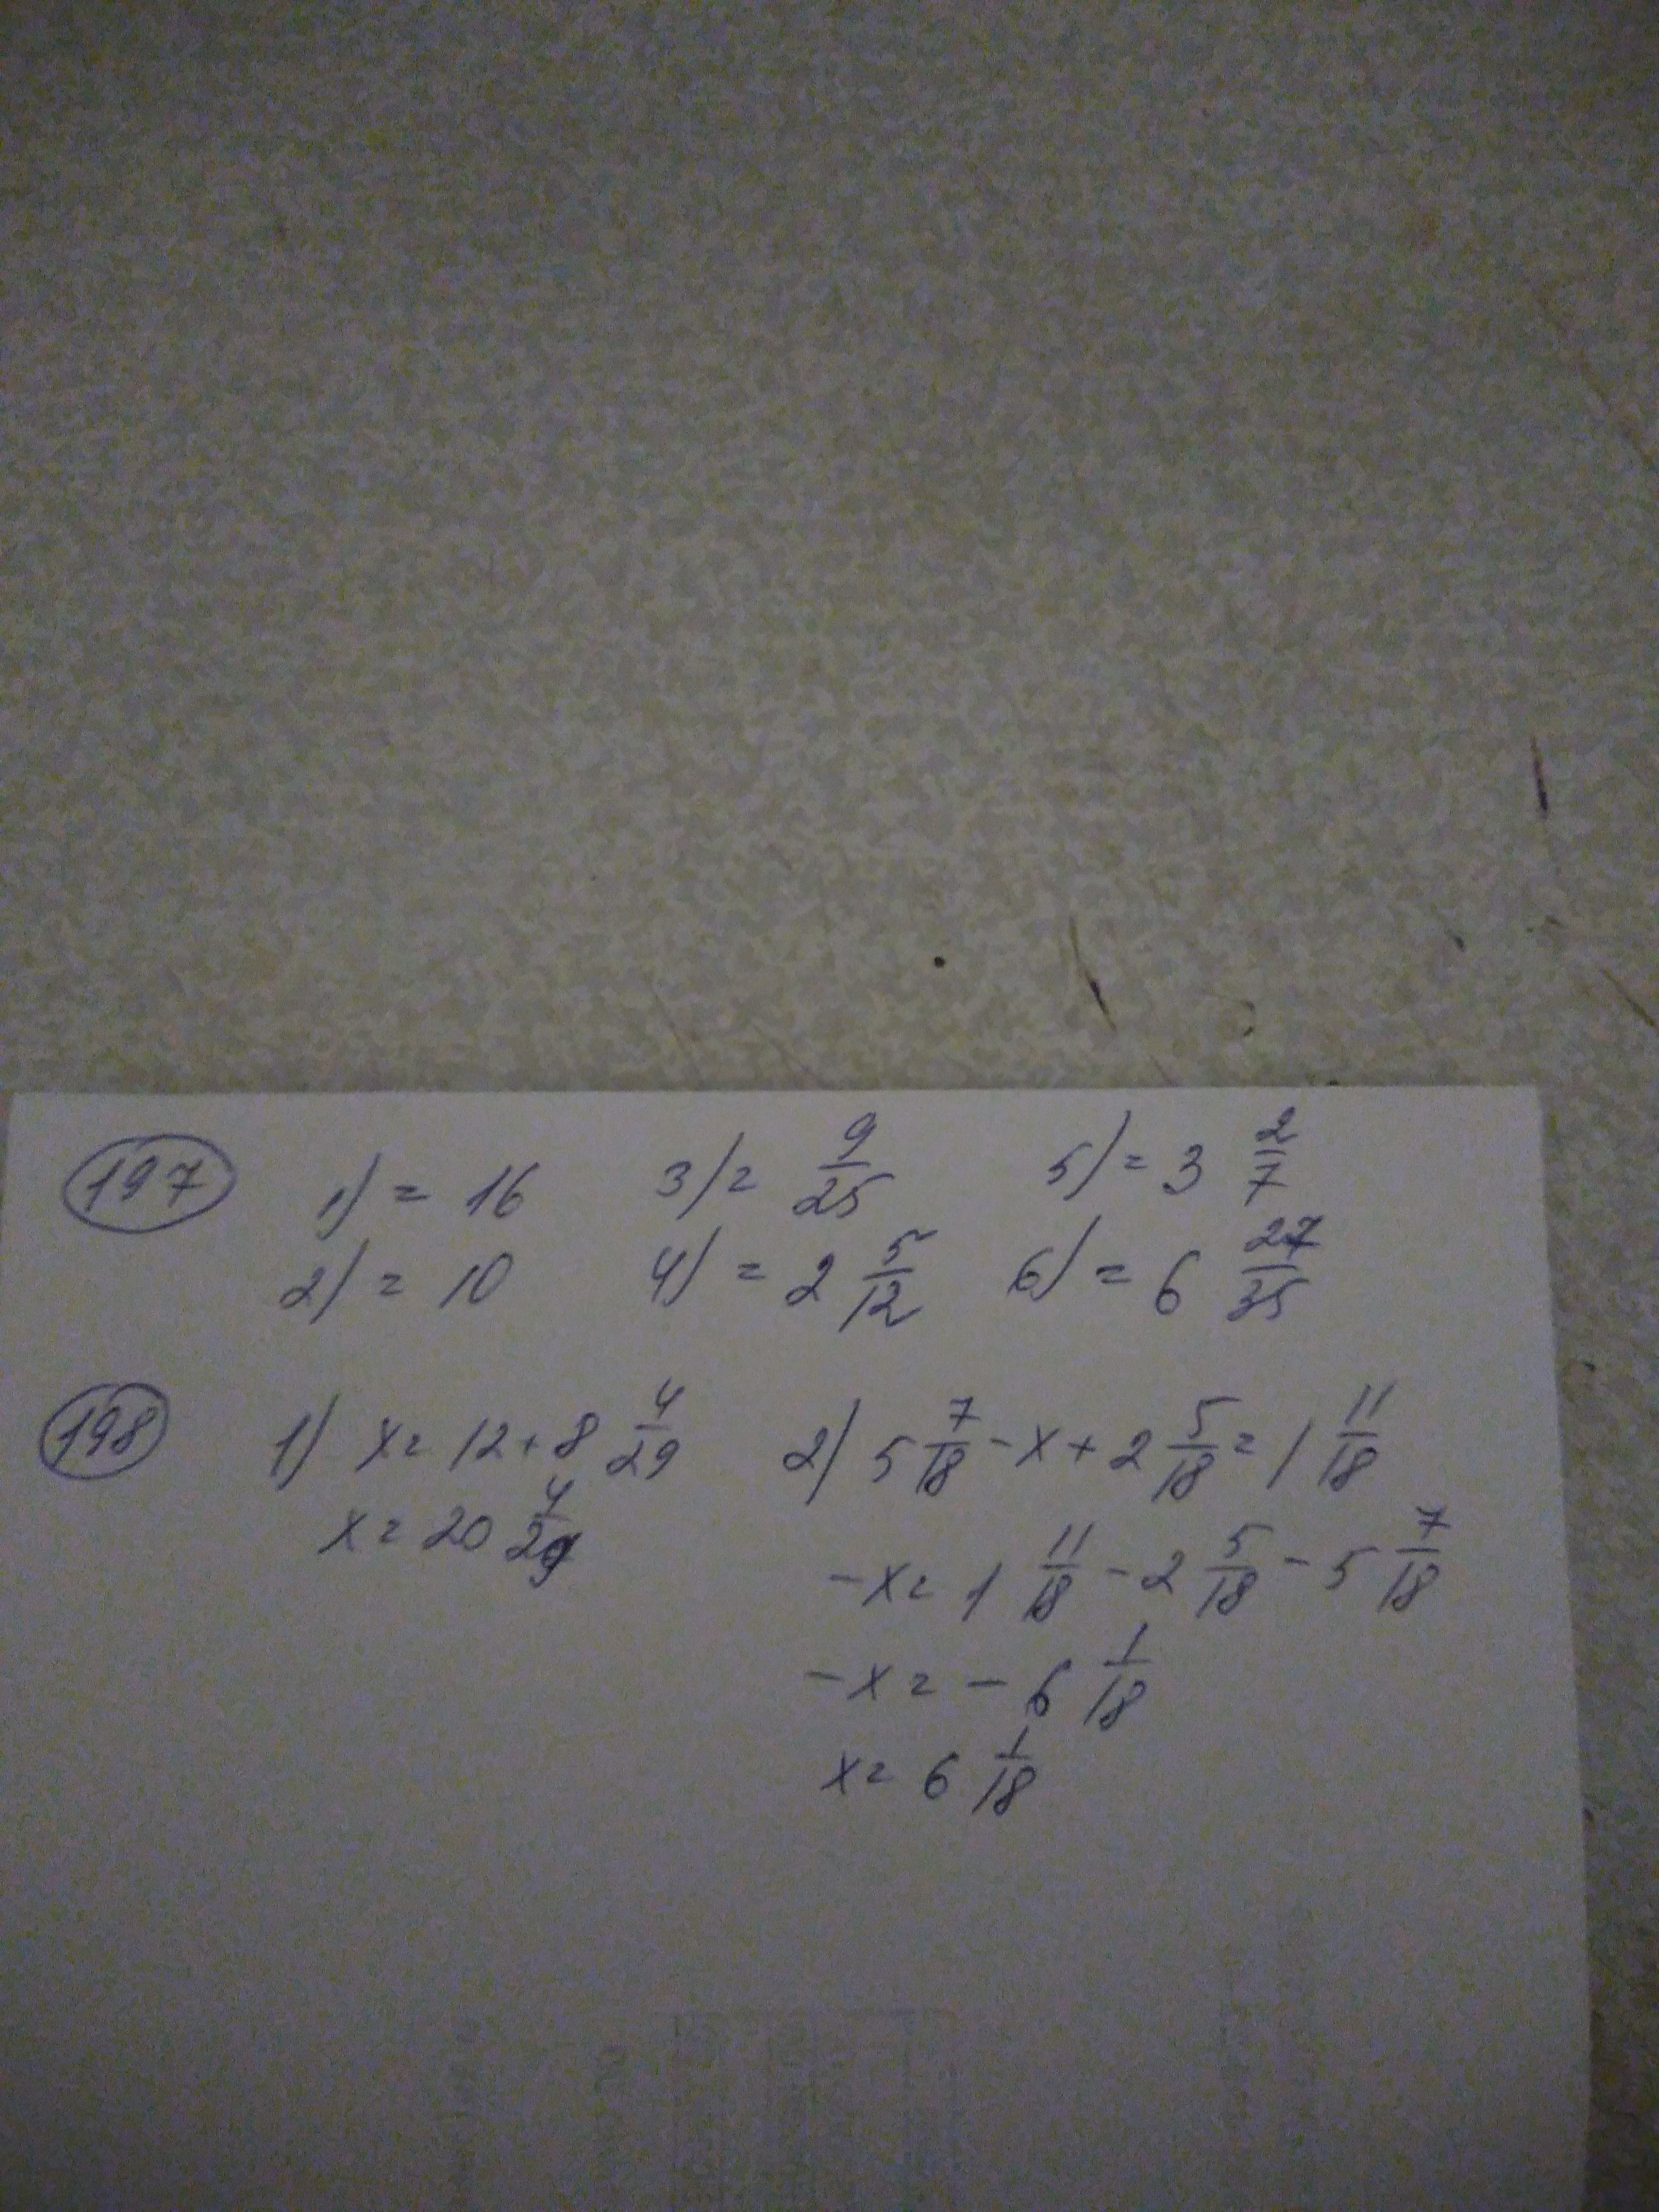 197 1) = 16 3) = 9/25 5) = 3 2/7
2) = 10 4) = 2 5/12 6) = 6 27/35
198 1) x = 12 + 8 4/29 2) 5 7/18 - x + 2 5/18 = 1 11/18
x = 20 4/29
-x = 1 11/18 - 2 5/18 - 5 7/18
-x = - 6 1/18
x = 6 1/18